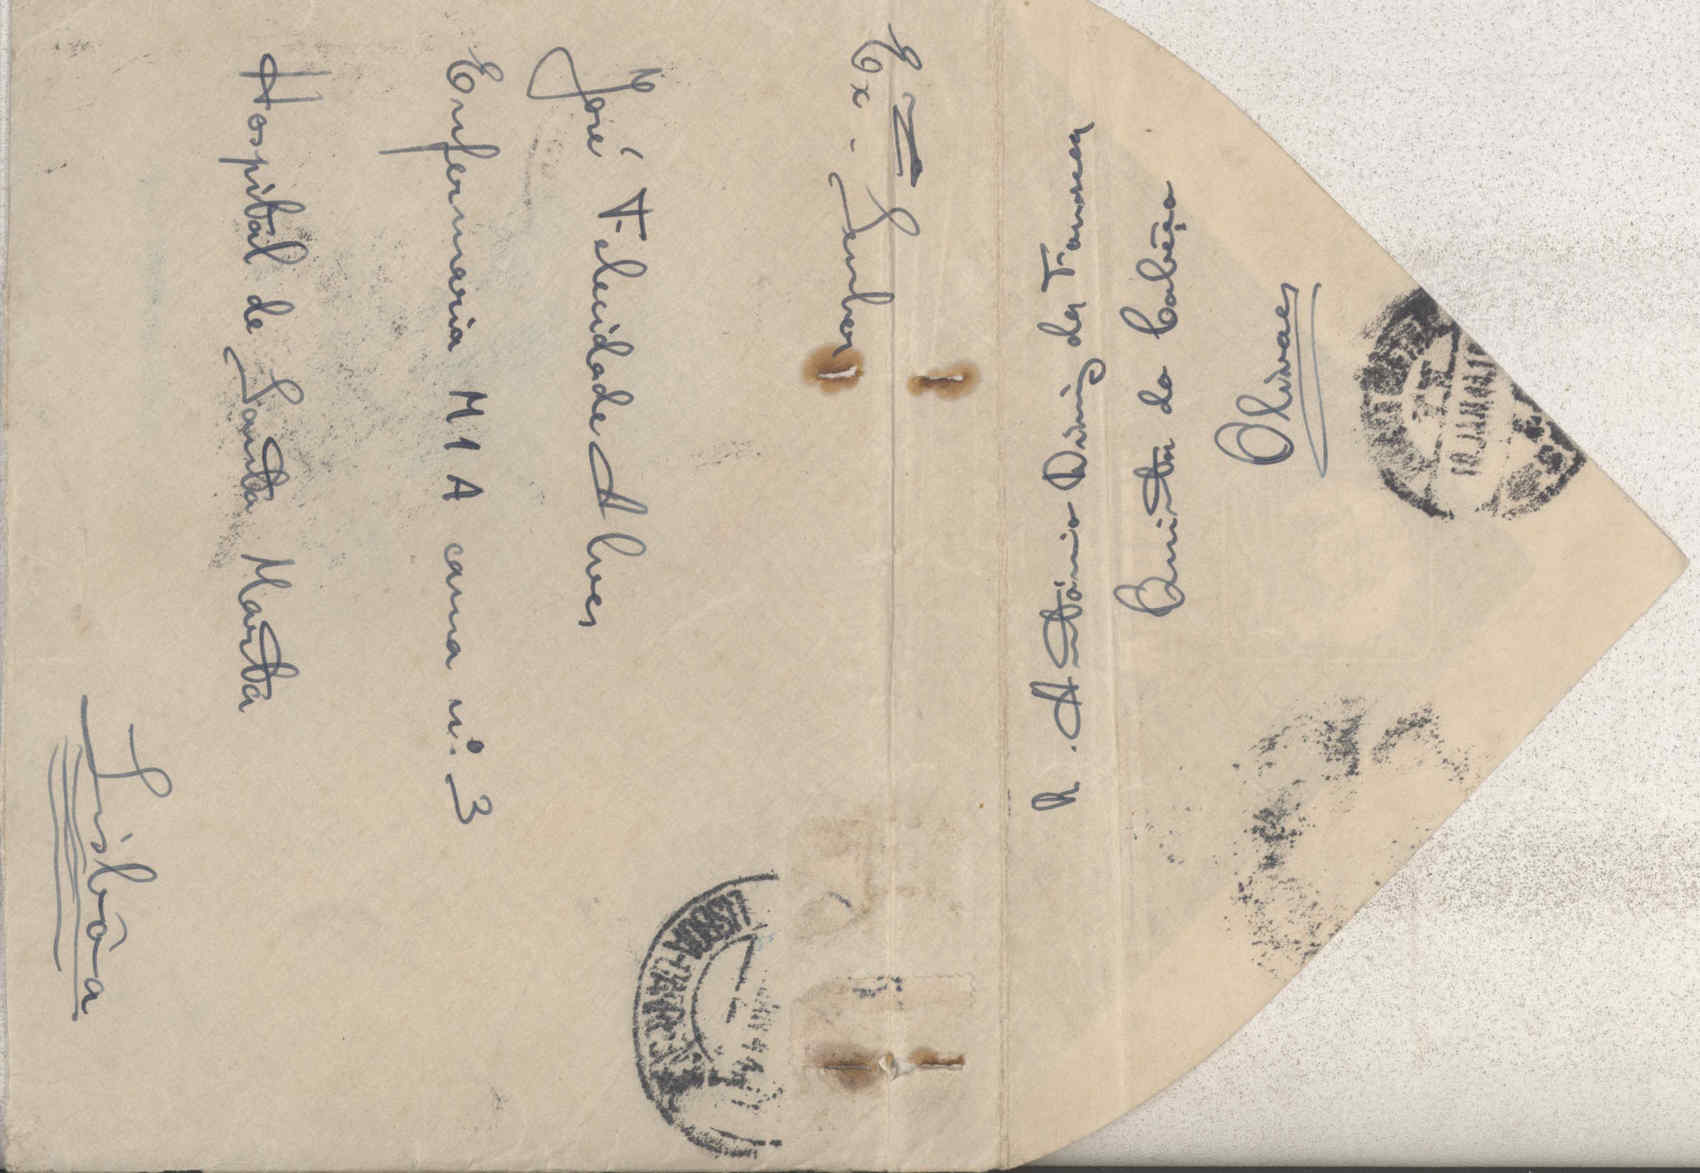 Ex.mo Senhor
José Felicidade Alves
Enfermaria M1A cama n.º 3
Hospital de Santa Marta
Lisbôa
R. António Diniz da Fonseca
Quinta do Cabeço
Olivaes
LISBOA
JAN